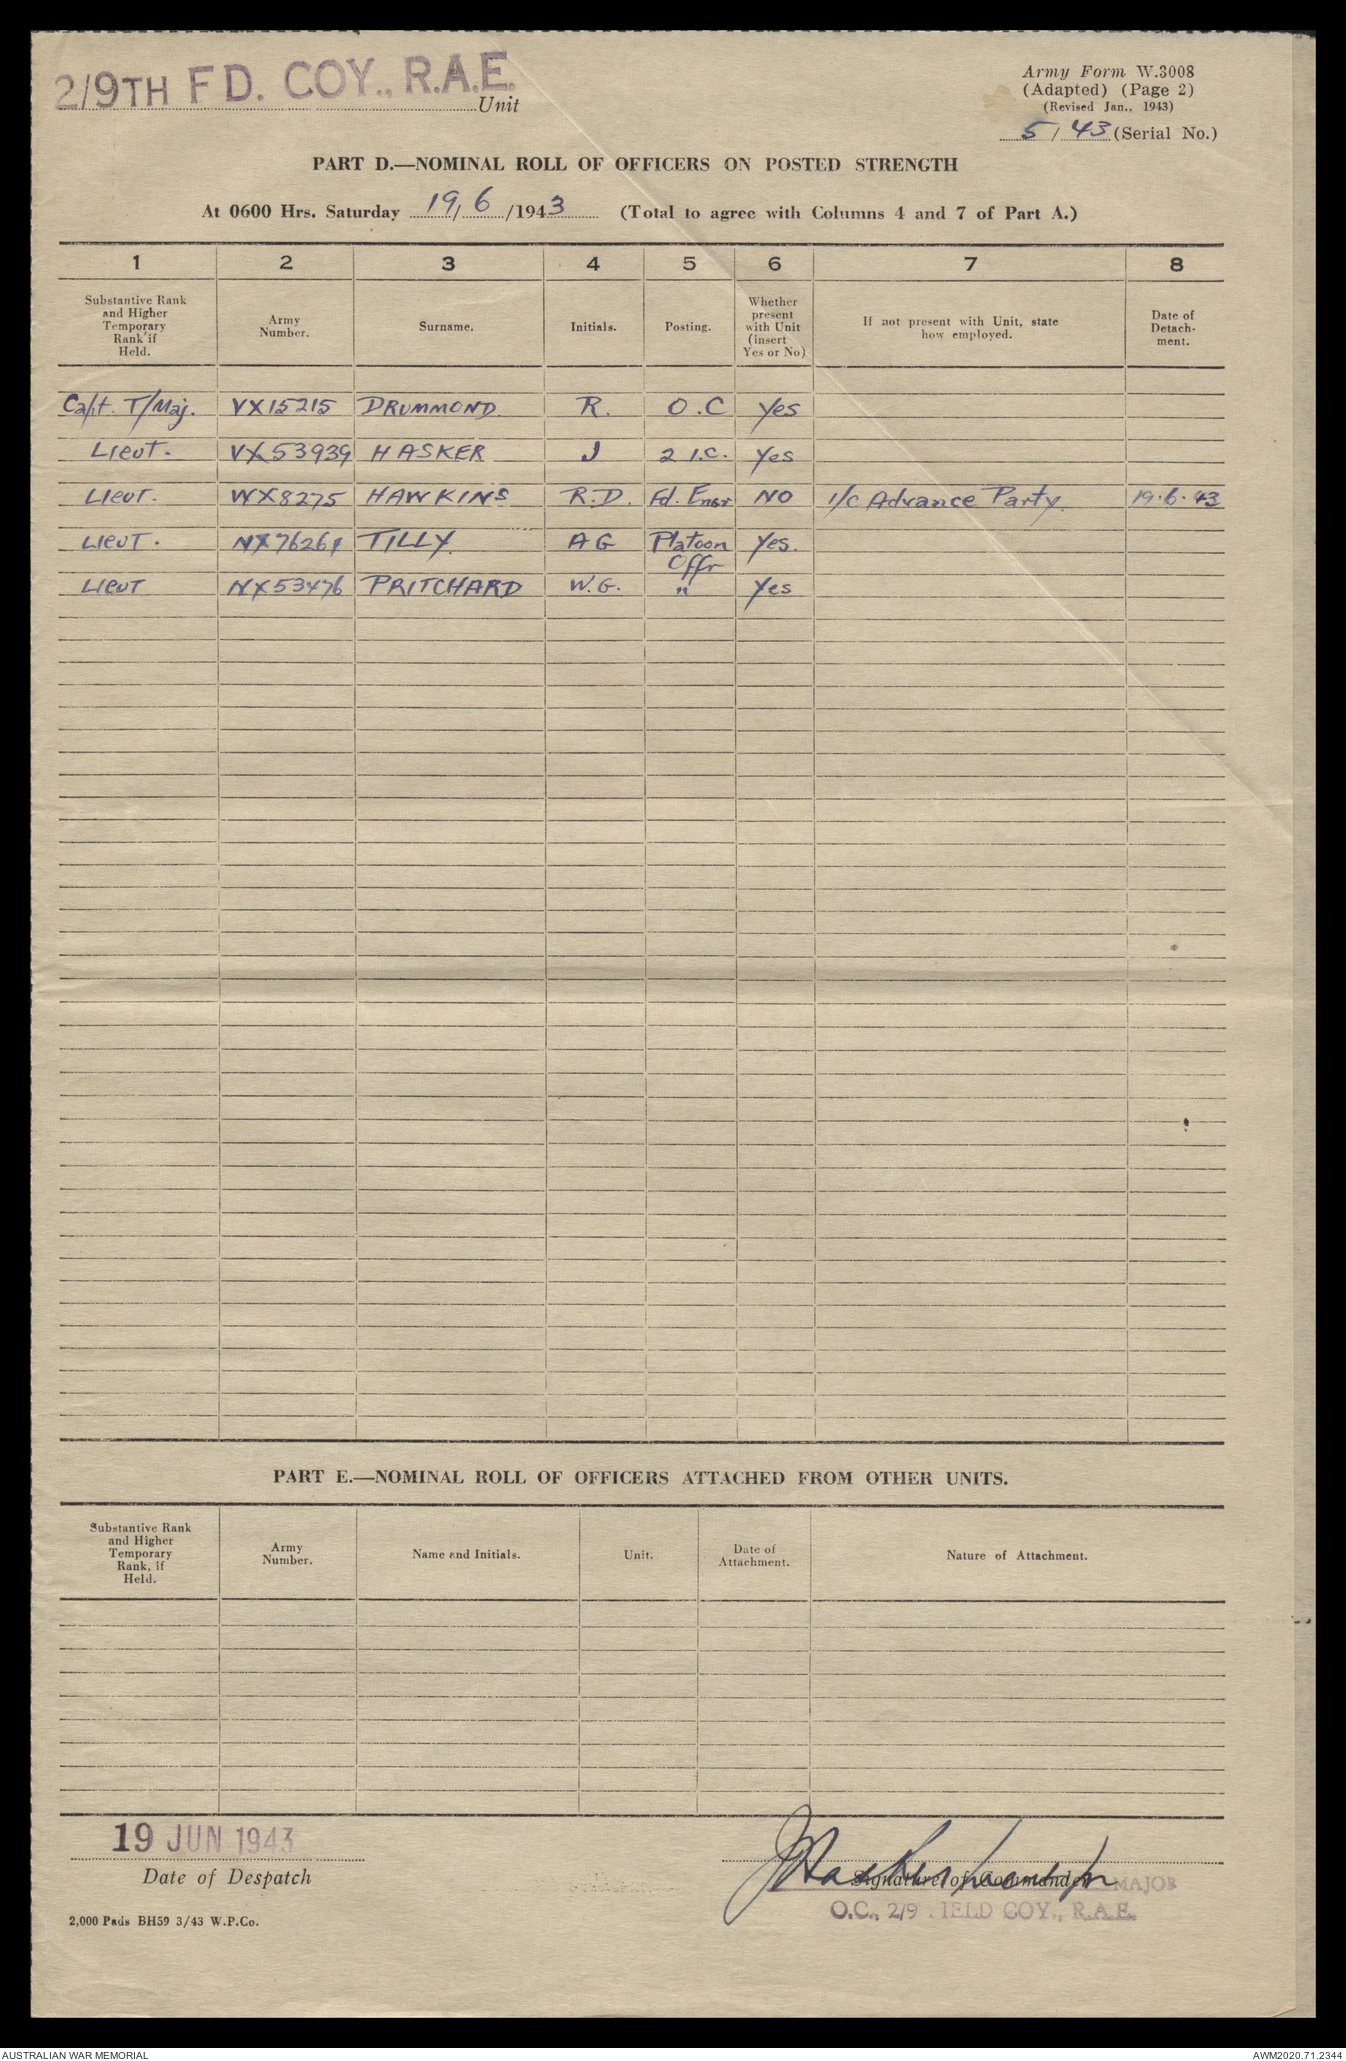 2/9TH FD. COY., R.A.E.
Unit
Army Form W.3008
(Adapted) (Page 2)
(Revised Jan., 1943)
5 / 43 (Serial No.)
PART D.—NOMINAL ROLL OF OFFICERS ON POSTED STRENGTH
At 0600 Hrs. Saturday 19/ 6 /1943 (Total to agree with Columns 4 and 7 of Part A.)
1 2 3 4 5 6 7 8
Substantive Rank and Higher Temporary Rank if Held.
Army Number.
Surname.
Initials.
Posting.
Whether present with Unit (insert Yes or No)
If not present with Unit, state how employed.
Date of Detach-ment.
Capt. T/Maj. VX15215 DRUMMOND R. O.C Yes
Lieut. VX53939 HASKER J 2 I.C. Yes
Lieut. WX8275 HAWKINS R.D. Fd. Engr NO I/C Advance Party. 19.6.43
Lieut. TILLY AG Platoon Offr Yes.
Lieut NX53476 PRITCHARD W.G. " Yes
PART E.—NOMINAL ROLL OF OFFICERS ATTACHED FROM OTHER UNITS.
Substantive Rank and Higher Temporary Rank, if Held.
Army Number.
Name and Initials.
Unit.
Date of Attachment.
Nature of Attachment.
19 JUN 1943
Date of Despatch
JHasker Lieut for
Signature of Commander
MAJOR
O.C., 2/9 IELD COY., R.A.E.
2,000 Pads BH59 3/43 W.P.Co.
AUSTRALIAN WAR MEMORIAL
AWM2020.71.2344